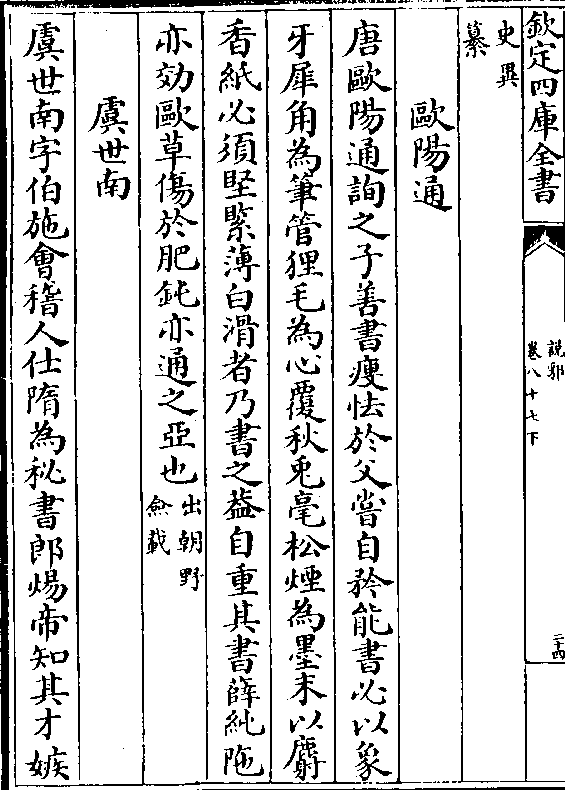 欽定四庫全書
說郛
卷八十七下
二十四
史異
纂
歐陽通
唐歐陽通詢之子善書瘦怯於父嘗自矜能書必以象
牙犀角為筆管狸毛為心覆秋兎毫松煙為墨末以麝
香紙必須堅緊薄白滑者乃書之葢自重其書薛純陁
亦効歐草傷於肥鈍亦通之亞也出朝野
僉載
虞世南
虞世南字伯施會稽人仕隋為秘書郎煬帝知其才嫉